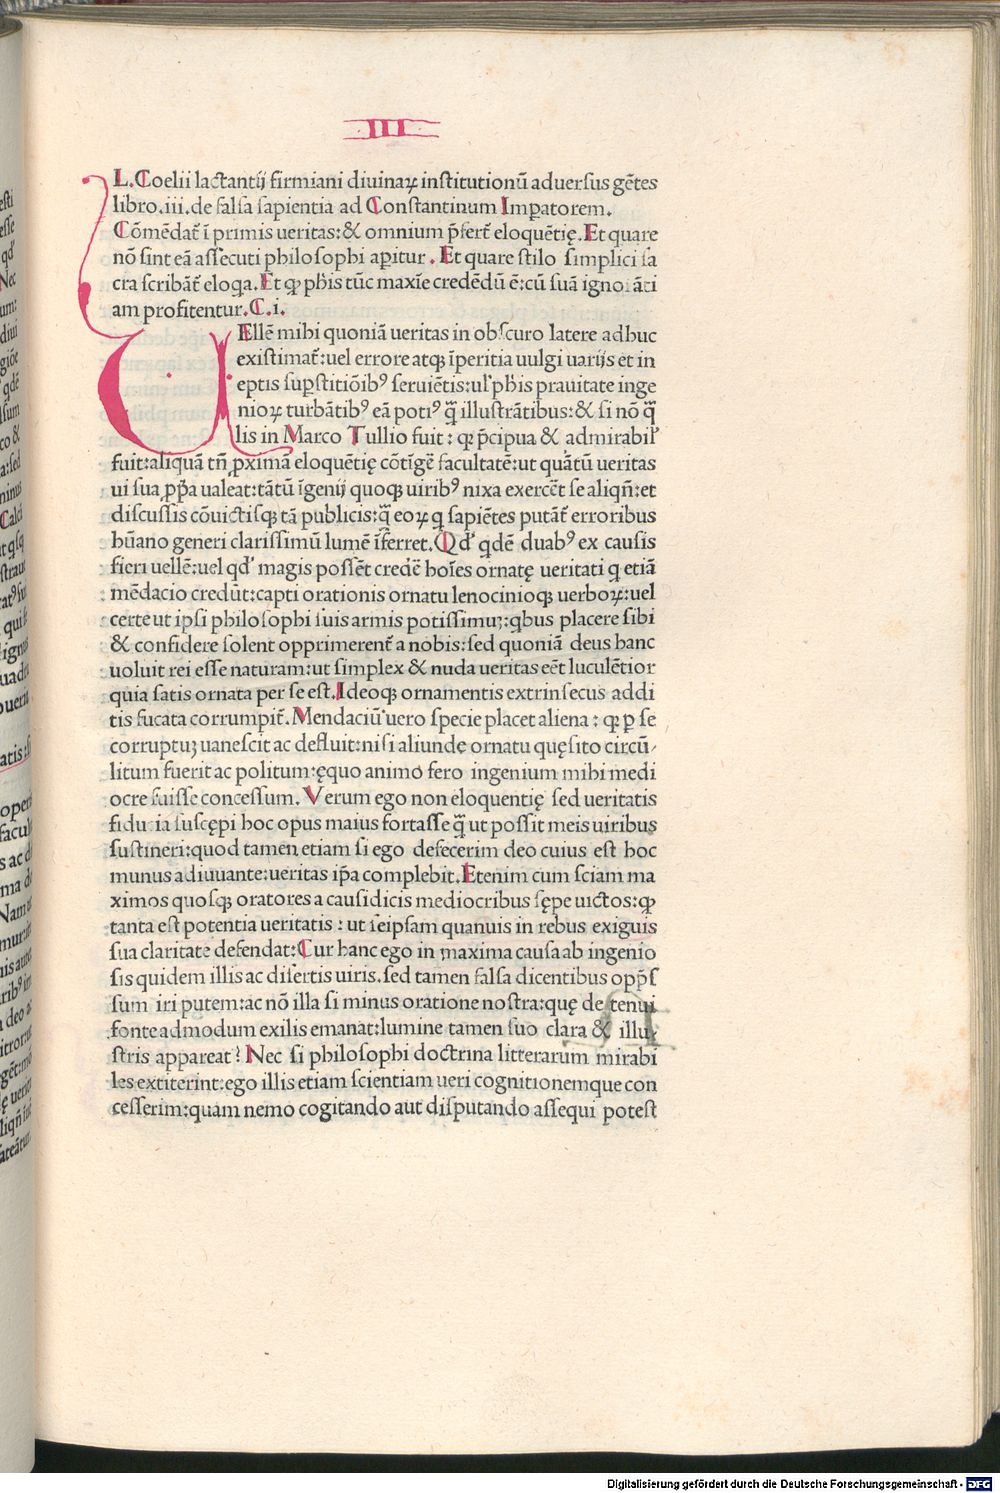 III
L. Coelii lactantij firmiani diuinaꝝ institutionũ aduersus gẽtes
libro.iii.de falsa sapientia ad Constantinum Imꝑatorem.
Cõmẽdat̃ ĩ primis ueritas:& omnium p̃fert̃ eloquẽtię. Et quare
nõ sint eã assecuti philosophi aꝑitur. Et quare stilo simplici sa
cra scribãt̃ eloq̃a. Et ꝙ ph̃is tũc maxĩe credẽdũ ẽ:cũ suã ignorãti
am profitentur. C.i.
Ellẽ mihi quoniã ueritas in obscuro latere adhuc
existimat̃:uel errore atqꝫ ĩperitia uulgi uarijs et in
eptis suꝑstitiõibꝰ seruiẽtis:ul̕ ph̃is prauitate inge
nioꝝ turbãtibꝰ eã potiꝰ q̃ illustrãtibus:& si nõ q̃
lis in Marco Tullio fuit: ꝙ p̃cipua & admirabil̕
fuit:aliquã tñ ꝓximã eloquẽtię cõtĩgẽ facultatẽ:ut quãtũ ueritas
ui sua ꝓp̃a ualeat:tãtũ ĩgenij quoqꝫ uiribꝰ nixa exercẽt se aliqñ:et
discussis cõuictisqꝫ tã publicis:q̃ eoꝝ q̃ sapiẽtes putãt̃ erroribus
hũano generi clarissimũ lumẽ ĩferret. Qd̕ qdẽ duabꝰ ex causis
fieri uellẽ:uel qd̕ magis possẽt credẽ hoĩes ornatę ueritati q̃ etiã
mẽdacio credũt:capti orationis ornatu lenocinioqꝫ uerboꝝ:uel
certe ut ipsi philosophi suis armis potissimuꝫ:qbus placere sibi
& confidere solent opprimerent̃ a nobis:sed quoniã deus hanc
uoluit rei esse naturam:ut simplex & nuda ueritas eẽt luculẽtior
quia satis ornata per se est. Ideoqꝫ ornamentis extrinsecus addi
tis fucata corrumpit̃. Mendaciũ uero specie placet aliena: ꝙ ꝑ se
corruptuꝫ uanescit ac defluit:nisi aliunde ornatu quęsito circũ
litum fuerit ac politum:ęquo animo fero ingenium mihi medi
ocre fuisse concessum. Verum ego non eloquentię sed ueritatis
fiducia suscępi hoc opus maius fortasse q̃ ut possit meis uiribus
sustineri:quod tamen etiam si ego defecerim deo cuius est hoc
munus adiuuante:ueritas ip̃a complebit. Etenim cum sciam ma
ximos quosqꝫ oratores a causidicis mediocribus sępe uictos:ꝙ
tanta est potentia ueritatis: ut seipsam quanuis in rebus exiguis
sua claritate defendat: Cur hanc ego in maxima causa ab ingenio
sis quidem illis ac disertis uiris.sed tamen falsa dicentibus opp̃s
sum iri putem:ac nõ illa si minus oratione nostra:quę de tenui
fonte admodum exilis emanat:lumine tamen suo clara & illu
stris appareat? Nec si philosophi doctrina litterarum mirabi
les extiterint:ego illis etiam scientiam ueri cognitionemque con
cesserim:quam nemo cogitando aut disputando assequi potest
Digitalisierung gefördert durch die Deutsche Forschungsgemeinschaft - DFG